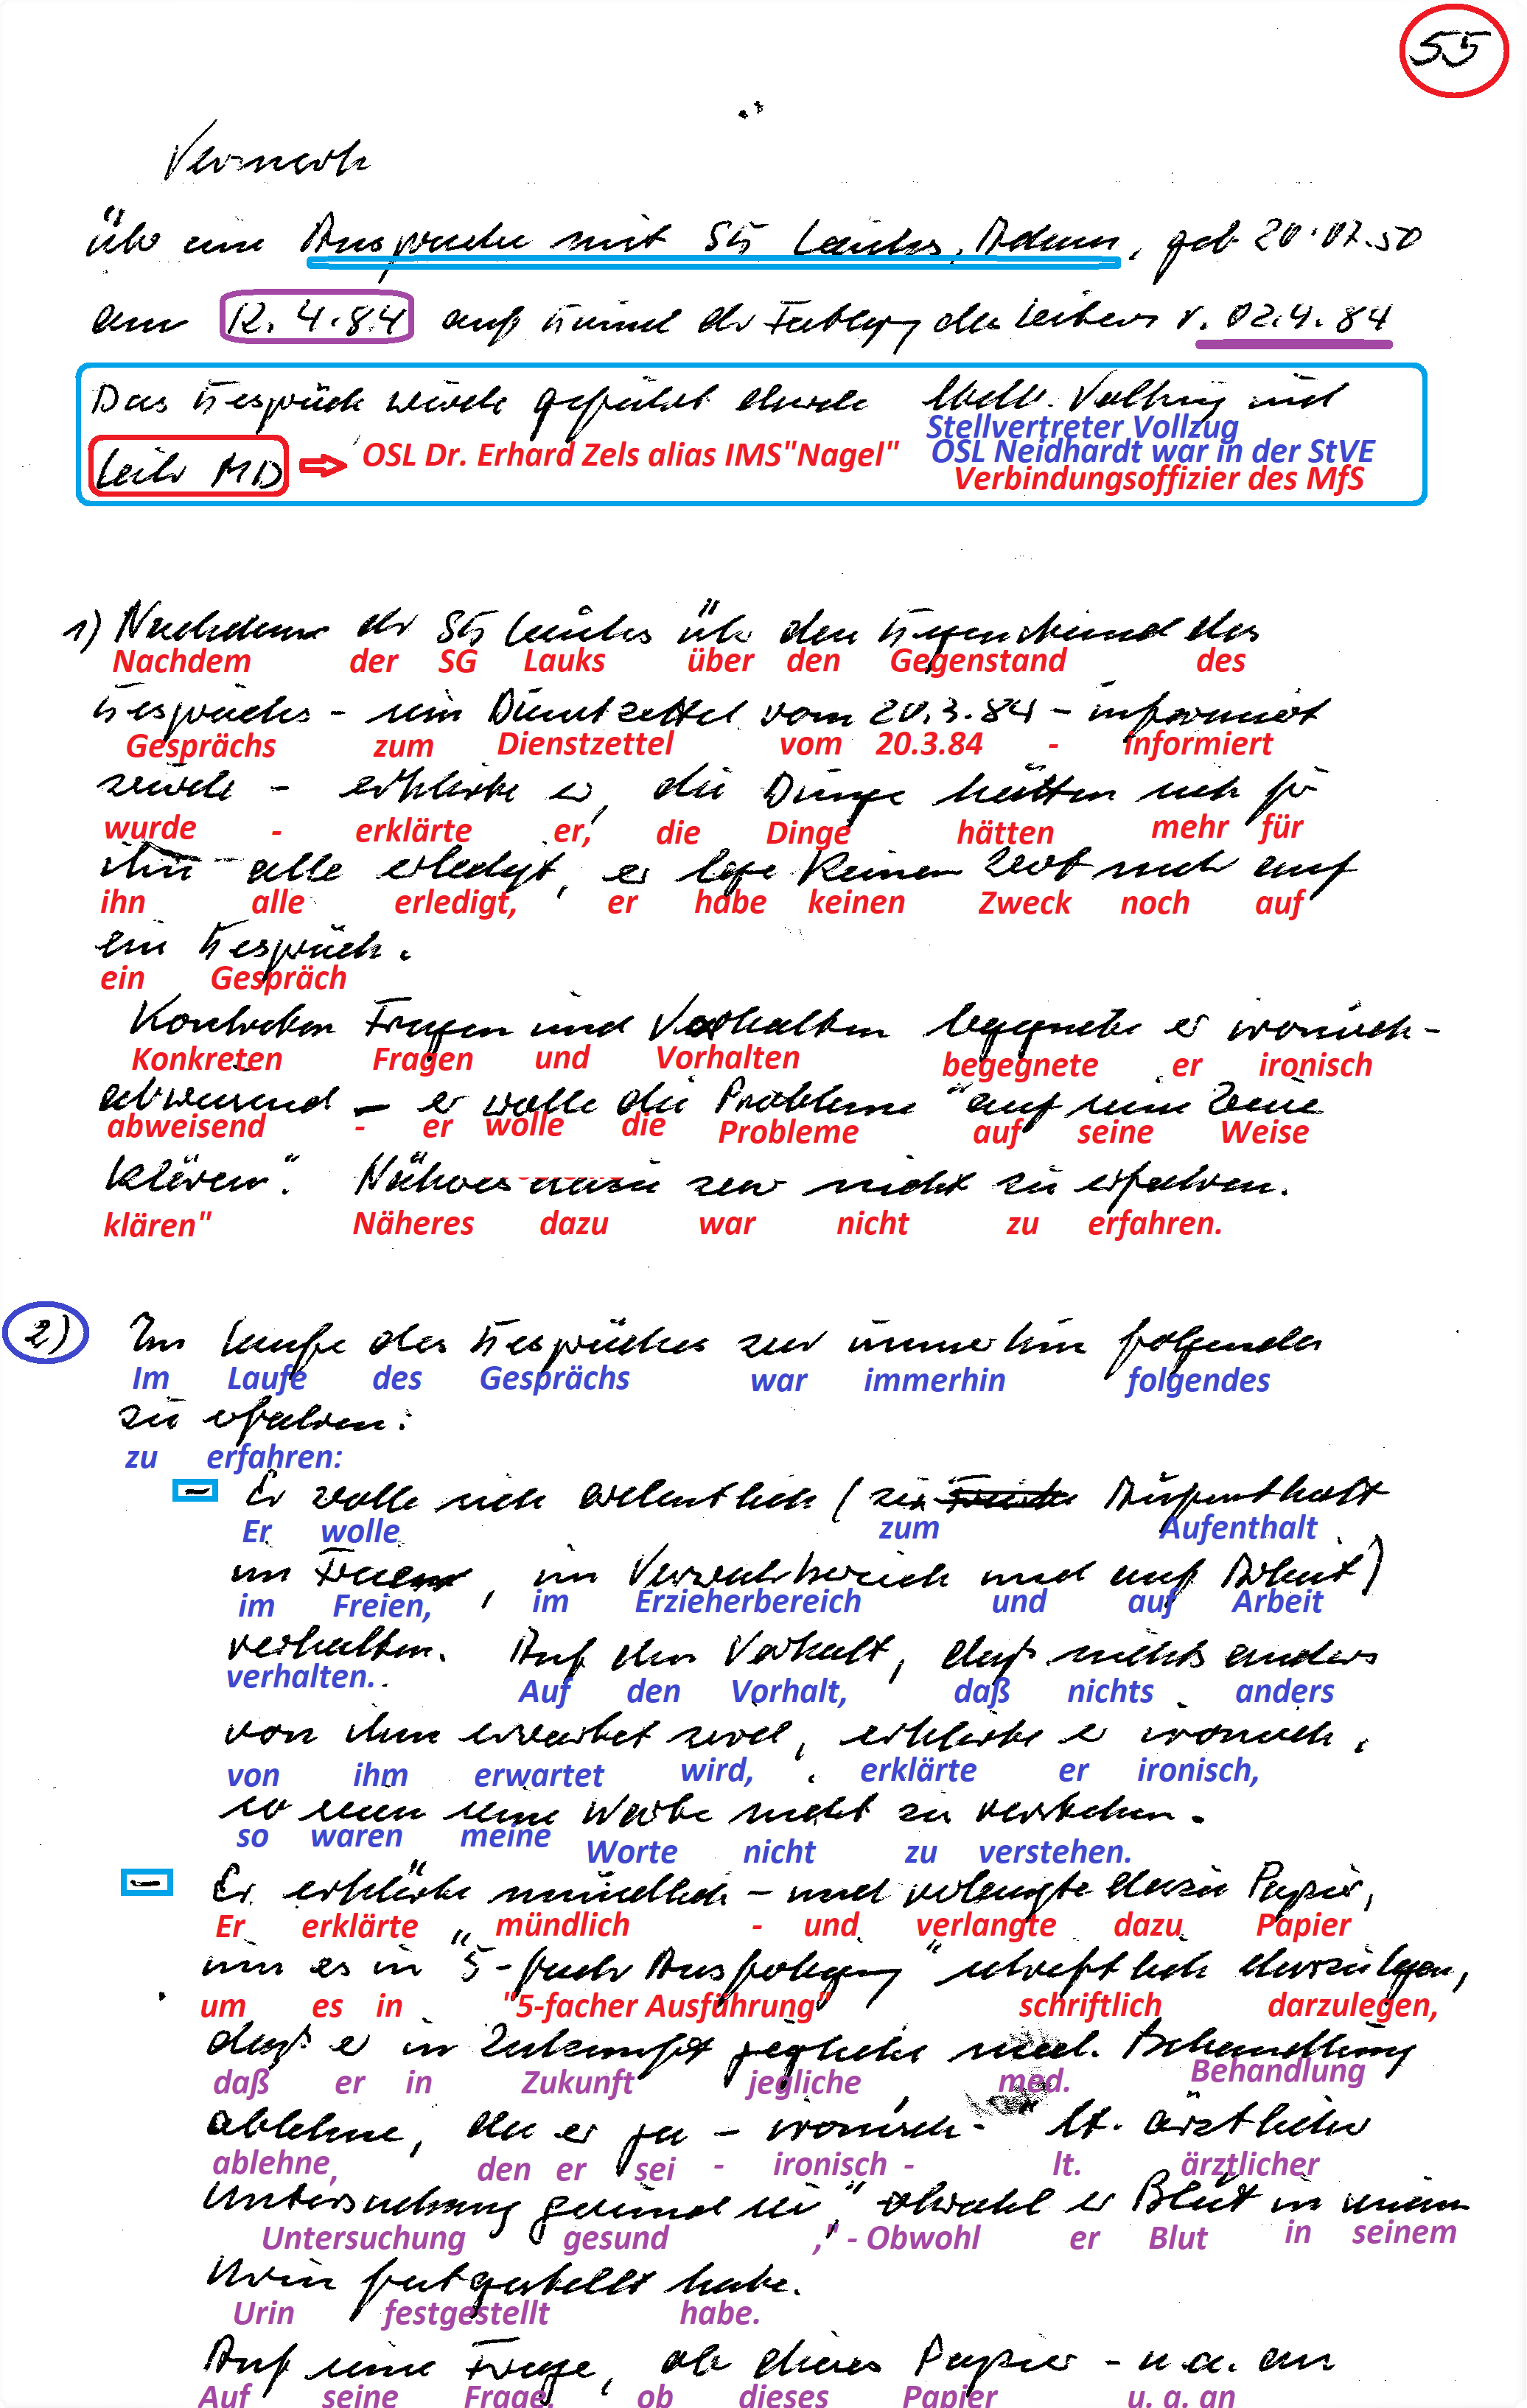 55
Vermerk
über eine Aussprache mit SG Lauks, Adam, geb 20.07.50
am 12.4.84 auf Grund der Festlegg des Leiters v. 02.4.84
Das Gespräch wurde geführt durch Stellv. Vollzug und
Stellvertreter Vollzug
Leiter MD OSL Dr. Erhard Zels alias IMS"Nagel" OSL Neidhardt war in der StVE
Verbindungsoffizier des MfS
1) Nachdem der SG Lauks über den Gegenstand des
Nachdem der SG Lauks über den Gegenstand des
Gesprächs - sein Dienstzettel vom 20.3.84 - informiert
Gesprächs zum Dienstzettel vom 20.3.84 - informiert
wurde - erklärte er, die Dinge hätten sich für
wurde - erklärte er, die Dinge hätten mehr für
ihn alle erledigt, er lege keinen Wert mehr auf
ihn alle erledigt, er habe keinen Zweck noch auf
ein Gespräch.
ein Gespräch
Konkreten Fragen und Vorhalten begegnete er ironisch-
Konkreten Fragen und Vorhalten begegnete er ironisch
abweisend - er wolle die Probleme "auf seine Weise
abweisend - er wolle die Probleme auf seine Weise
klären". Näheres dazu war nicht zu erfahren.
klären" Näheres dazu war nicht zu erfahren.
2) Im Laufe des Gespräches war immerhin folgendes
Im Laufe des Gesprächs war immerhin folgendes
zu erfahren:
zu erfahren:
- Er wolle sich ordentlich (zum Aufenthalt
Er wolle zum Aufenthalt
im Freien, im Verwahrbereich und auf Arbeit)
im Freien, im Erzieherbereich und auf Arbeit
verhalten. Auf den Vorhalt, daß nichts anders
verhalten. Auf den Vorhalt, daß nichts anders
von ihm erwartet wird, erklärte er ironisch,
von ihm erwartet wird, erklärte er ironisch,
so seine Worte nicht zu verstehen.
so waren meine Worte nicht zu verstehen.
- Er erklärte mündlich - und verlangte dazu Papier,
Er erklärte mündlich - und verlangte dazu Papier
um es in "5-facher Ausfertigung" schriftlich darzulegen,
um es in "5-facher Ausführung" schriftlich darzulegen,
daß er in Zukunft jegliche med. Behandlung
daß er in Zukunft jegliche med. Behandlung
ablehne, da er ja - ironisch - lt. ärztlicher
ablehne, den er sei - ironisch - lt. ärztlicher
Untersuchung gesund sei," obwohl er Blut in seinem
Untersuchung gesund ," - Obwohl er Blut in seinem
Urin festgestellt habe.
Urin festgestellt habe.
Auf seine Frage, ob dieses Papier - u.a. an
Auf seine Frage, ob dieses Papier u. a. an